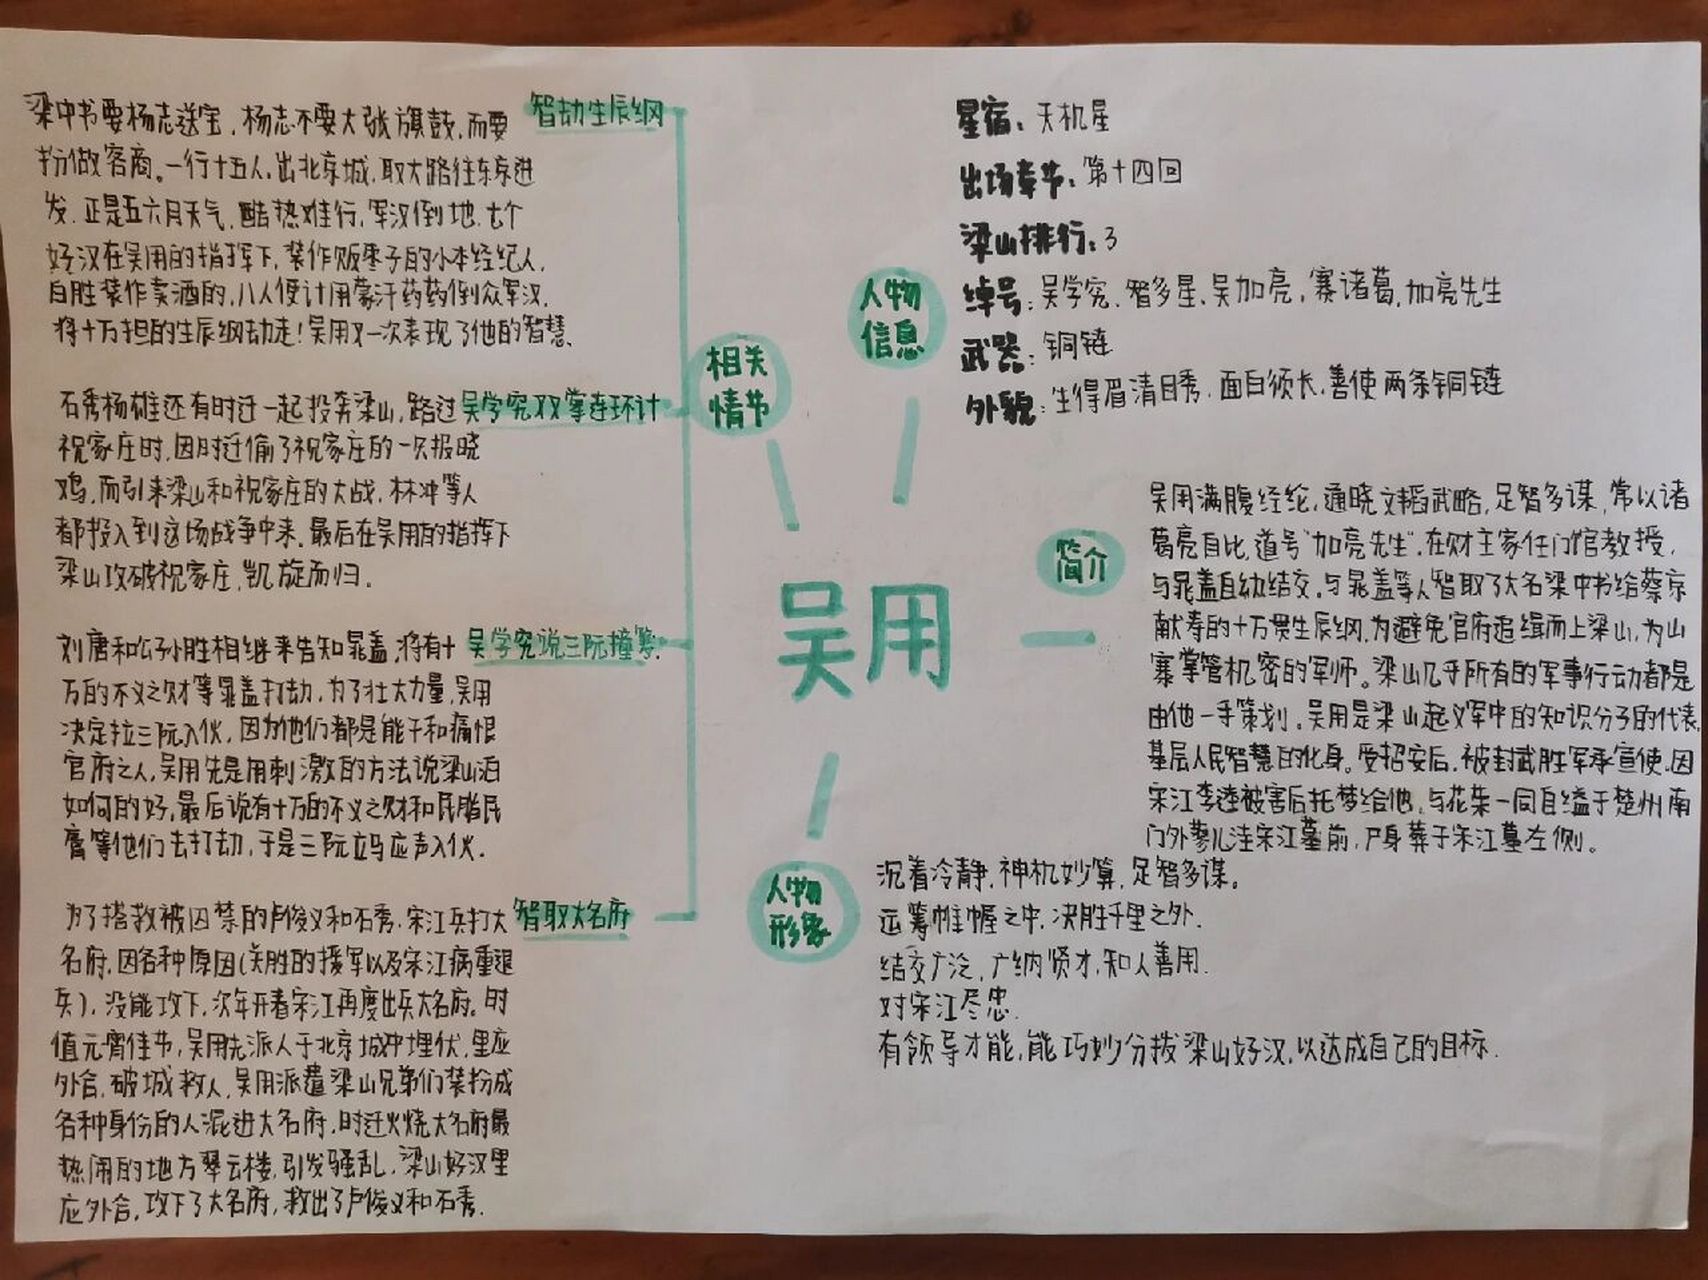 吴用
相关情节
智劫生辰纲
梁中书要杨志送宝，杨志不要大张旗鼓，而要
扮做客商。一行十五人，出北京城，取大路往东京进
发，正是五六月天气，酷热难行，军汉倒地，七个
好汉在吴用的指挥下，装作贩枣子的小本经纪人，
白胜装作卖酒的，八人便计用蒙汗药药倒众军汉，
将十万担的生辰纲劫走！吴用又一次表现了他的智慧。
吴学究双掌连环计
石秀杨雄还有时迁一起投奔梁山，路过
祝家庄时，因时迁偷了祝家庄的一只报晓
鸡，而引来梁山和祝家庄的大战，林冲等人
都投入到这场战争中来，最后在吴用的指挥下
梁山攻破祝家庄，凯旋而归。
吴学究说三阮撞筹
刘唐和公孙胜相继来告知晁盖，将有十
万的不义之财等晁盖打劫，为了壮大力量，吴用
决定拉三阮入伙，因为他们都是能干和痛恨
官府之人，吴用先是用刺激的方法说梁山泊
如何的好，最后说有十万的不义之财和民脂民
膏等他们去打劫，于是三阮立马应声入伙。
智取大名府
为了搭救被囚禁的卢俊义和石秀，宋江兵打大
名府，因各种原因(关胜的援军以及宋江病重退
兵)，没能攻下，次年开春宋江再度出兵大名府。时
值元宵佳节，吴用先派人于北京城中埋伏，里应
外合，破城救人，吴用派遣梁山兄弟们装扮成
各种身份的人混进大名府，时迁火烧大名府最
热闹的地方翠云楼，引发骚乱，梁山好汉里
应外合，攻下了大名府，救出了卢俊义和石秀。
人物信息
星宿：天机星
出场章节：第十四回
梁山排行：3
绰号：吴学究、智多星、吴加亮，赛诸葛，加亮先生
武器：铜链
外貌：生得眉清目秀，面白须长，善使两条铜链
简介
吴用满腹经纶，通晓文韬武略，足智多谋，常以诸
葛亮自比，道号“加亮先生”，在财主家任门馆教授，
与晁盖自幼结交，与晁盖等人智取了大名梁中书给蔡京
献寿的十万贯生辰纲，为避免官府追缉而上梁山，为山
寨掌管机密的军师。梁山几乎所有的军事行动都是
由他一手策划，吴用是梁山起义军中的知识分子的代表，
基层人民智慧的化身。受招安后，被封武胜军承宣使，因
宋江李逵被害后托梦给他，与花荣一同自缢于楚州南
门外蓼儿洼宋江墓前，尸身葬于宋江墓左侧。
人物形象
沉着冷静，神机妙算，足智多谋。
运筹帷幄之中，决胜千里之外。
结交广泛，广纳贤才，知人善用。
对宋江尽忠。
有领导才能，能巧妙分拨梁山好汉，以达成自己的目标。